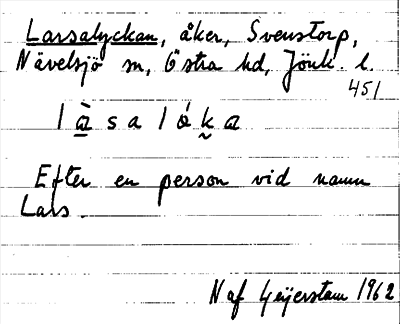 Larsalyckan, åker, Svenstorp,
Nävelsjö sn, Östra hd, Jönk. l.
451
l à s a l ó k a
Efter en person vid namn
Lars.
N af Geijerstam 1962